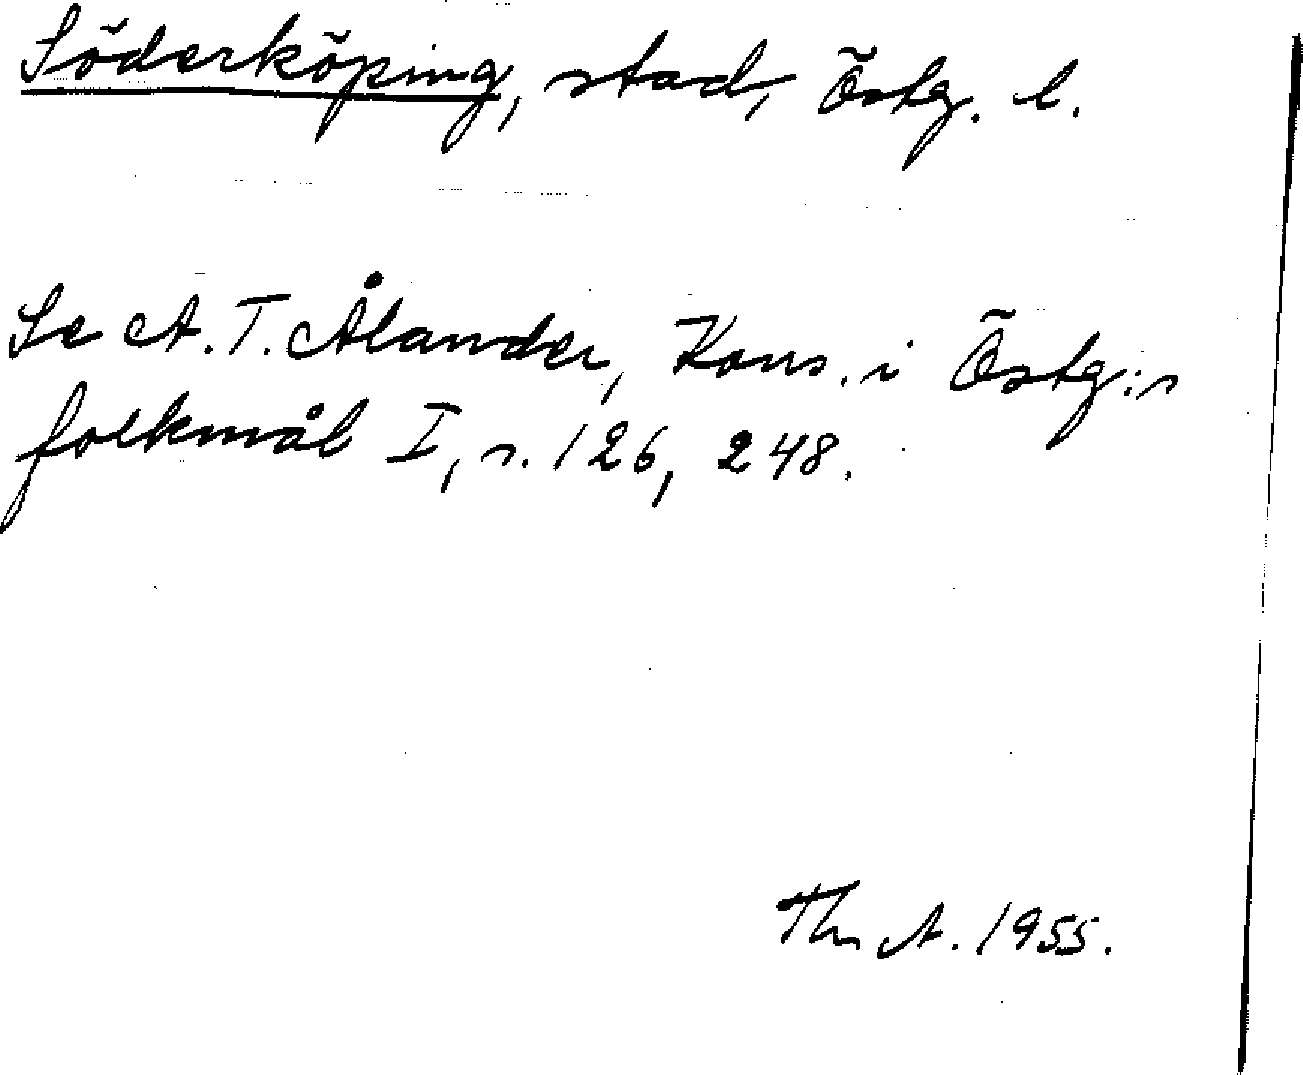 Söderköping, stad, Östg. l.
Se A. T. Ålander, Kons. i Östg:s
folkmål I, s. 126, 248.
Th A. 1955.